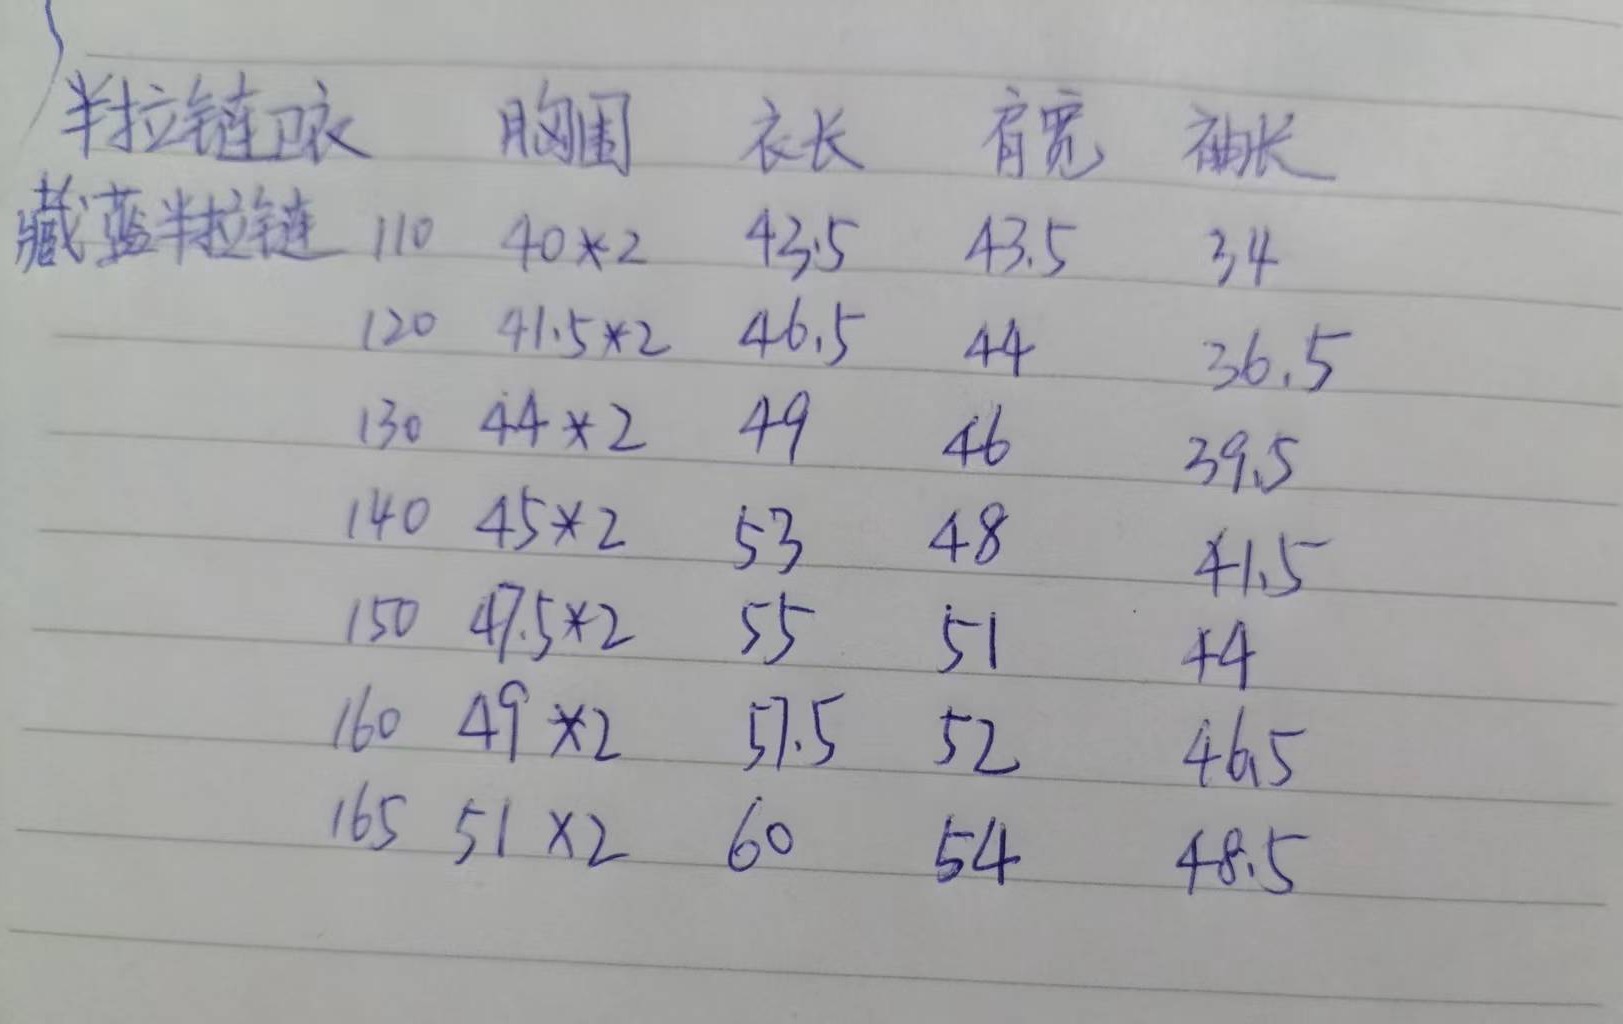 半拉链卫衣 胸围 衣长 肩宽 袖长
藏蓝半拉链 110 40*2 43.5 43.5 34
120 41.5*2 46.5 44 36.5
130 44*2 49 46 39.5
140 45*2 53 48 41.5
150 47.5*2 55 51 44
160 49*2 57.5 52 46.5
165 51×2 60 54 48.5